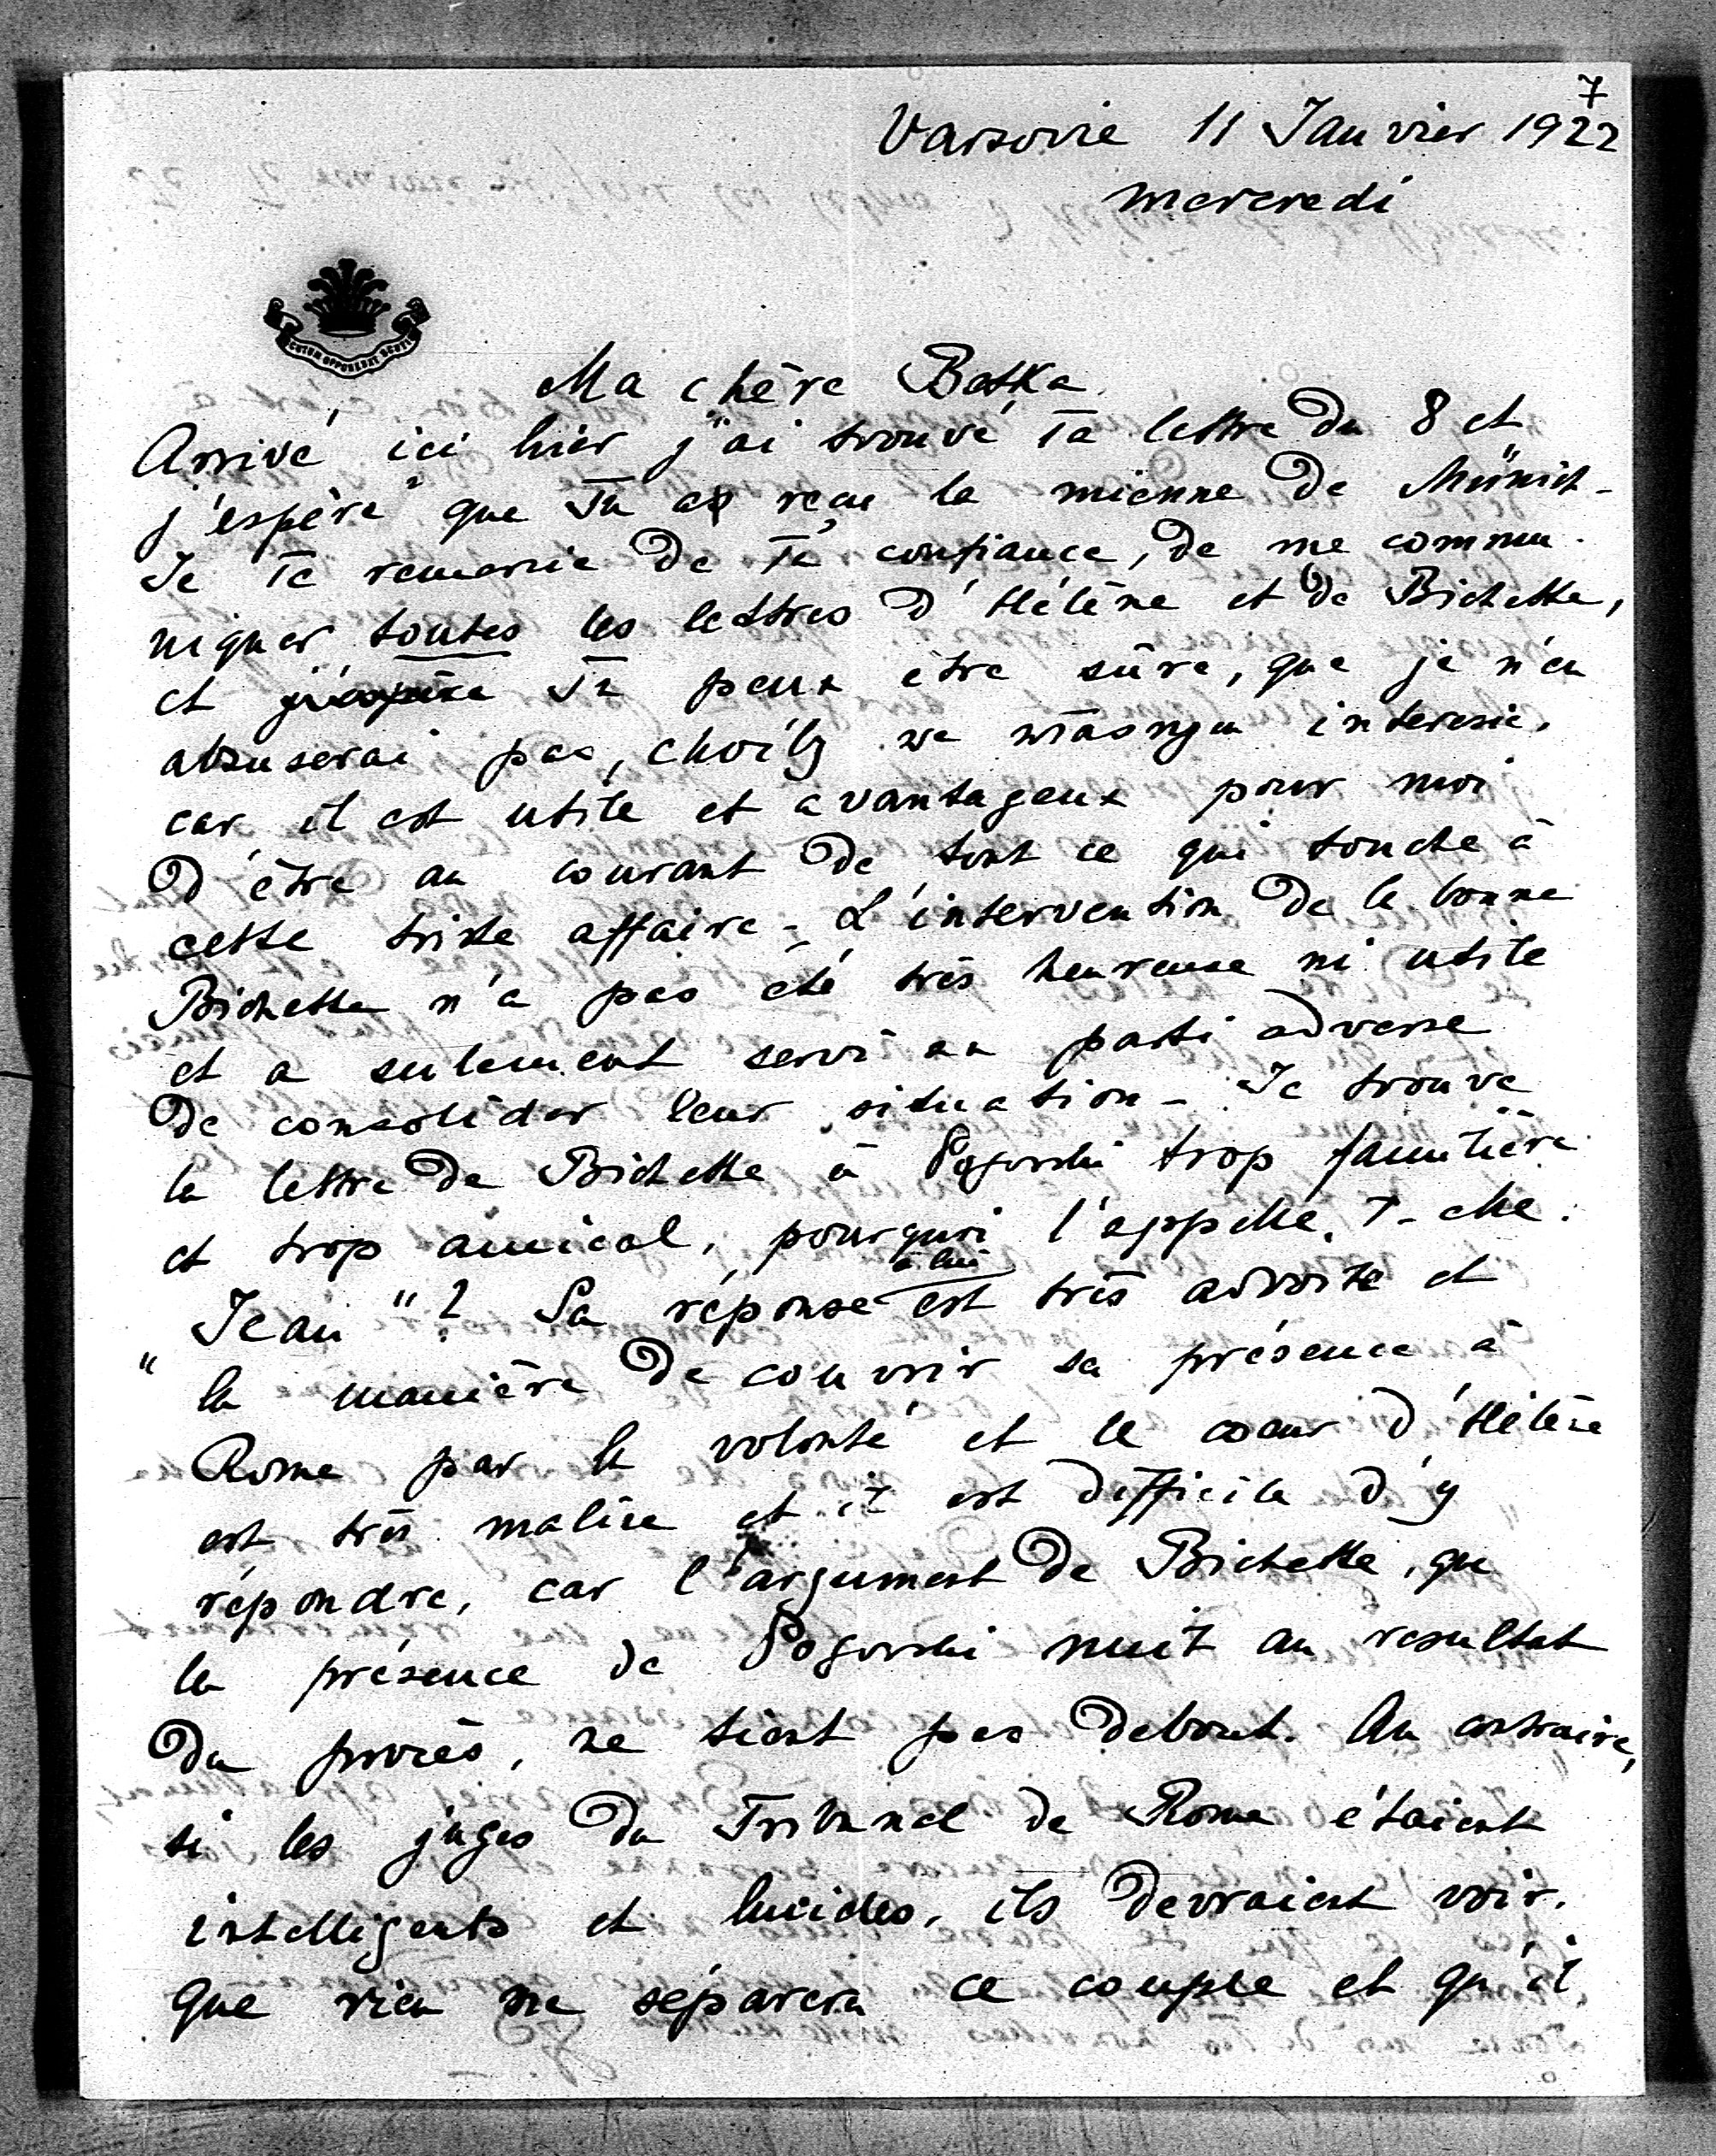 7
Varsovie 11 Janvier 1922
mercredi
Ma chère Betka
Arrivé ici hier j'ai trouvé Ta lettre du 8 et
j'espère que Tu as reçu la mienne de Münich -
Je Te remercie de Ta confiance, de me commu-
niquer toutes les lettres d'Hélène et de Bichette,
et j'espère Tu peux être sûre, que je n'en
abuserai pas, choćby we własnym interesie,
car il est utile et avantageux pour moi
d'être au courant de tout ce qui touche à
cette triste affaire - L'intervention de la bonne
Bichette n'a pas été très heureuse ni utile
et a seulement servi au parti adverse
de consolider leur situation - Je trouve
la lettre de Bichette à Pogorski trop familière
et trop amical, pourquoi l'appelle-T-elle
"Jean"? Sa réponse à lui est très adroite et
la manière de couvrir sa présence à
Rome par la volonté et le cœur d'Hélène
est très malice et il est difficile d'y
répondre, car l'argument de Bichette, que
la présence de Pogorski nuit au resultat
du procès, ne tient pas debout. Au contraire,
si les juges du Tribunal de Rome étaient
intelligents et lucides, ils devraient voir,
que rien ne séparera ce couple et qu'il